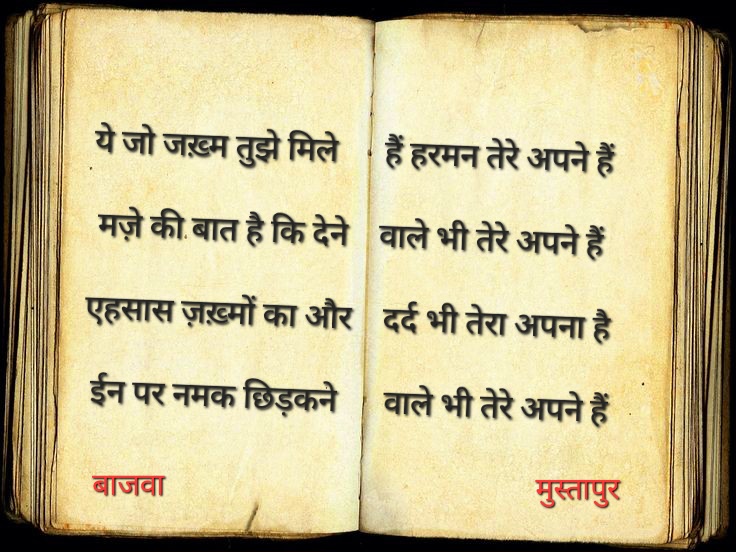 ये जो जख़्म तुझे मिले हैं हरमन तेरे अपने हैं
मज़े की बात है कि देने वाले भी तेरे अपने हैं
एहसास ज़ख़्मों का और दर्द भी तेरा अपना है
ईन पर नमक छिड़कने वाले भी तेरे अपने हैं
बाजवा मुस्तापुर